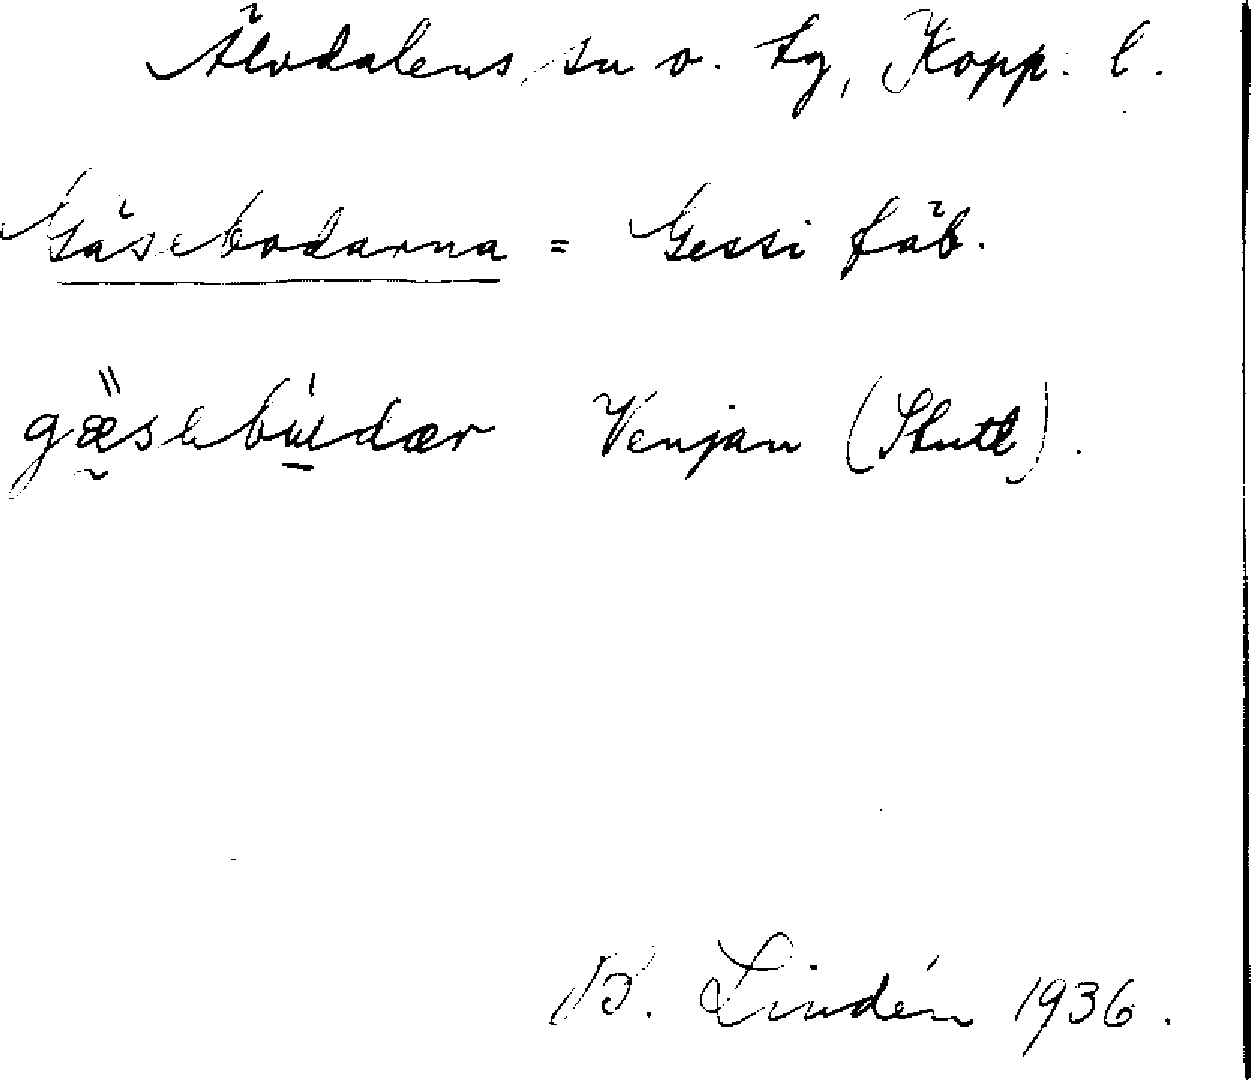 Älvdalens sn o. tg, Kopp. l.
Gäsebodarna = Gessi fäb.
gæsebudær Venjan (Skutt).
B. Lindén 1936.